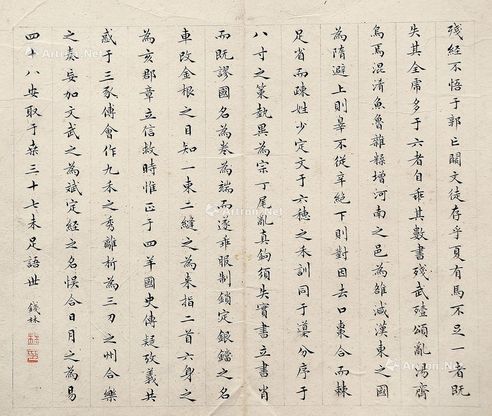 殘經不悟于郭亡闕文徒存乎夏有馬不足一者既
失其全虎多于六者自乖其數書殘武殪頌亂湯齊
烏焉混淆魚魯雜糅增河南之邑為雒減漢東之國
為隋避上則辠不從辛絶下則對因去口棗合而棘
足省而疎姓少定文于六穗之禾訓同于䆃分序于
八寸之策執異為宗丁尾亂真鉤須失實書立書肖
而既謬國名為卷為端而遂乖服制鎖定銀鐺之名
車改金根之目知一束二縫之為來指二首六身之
為亥郡章立信救時惟正于四羊國史傳疑攷義共
惑于三豕傳會作九禾之秀離析為三刀之州合樂
之奏妄加文武之為斌定經之名悞合日月之為易
四十八安取于桒三十七未足語世 錢林
Artron.Net